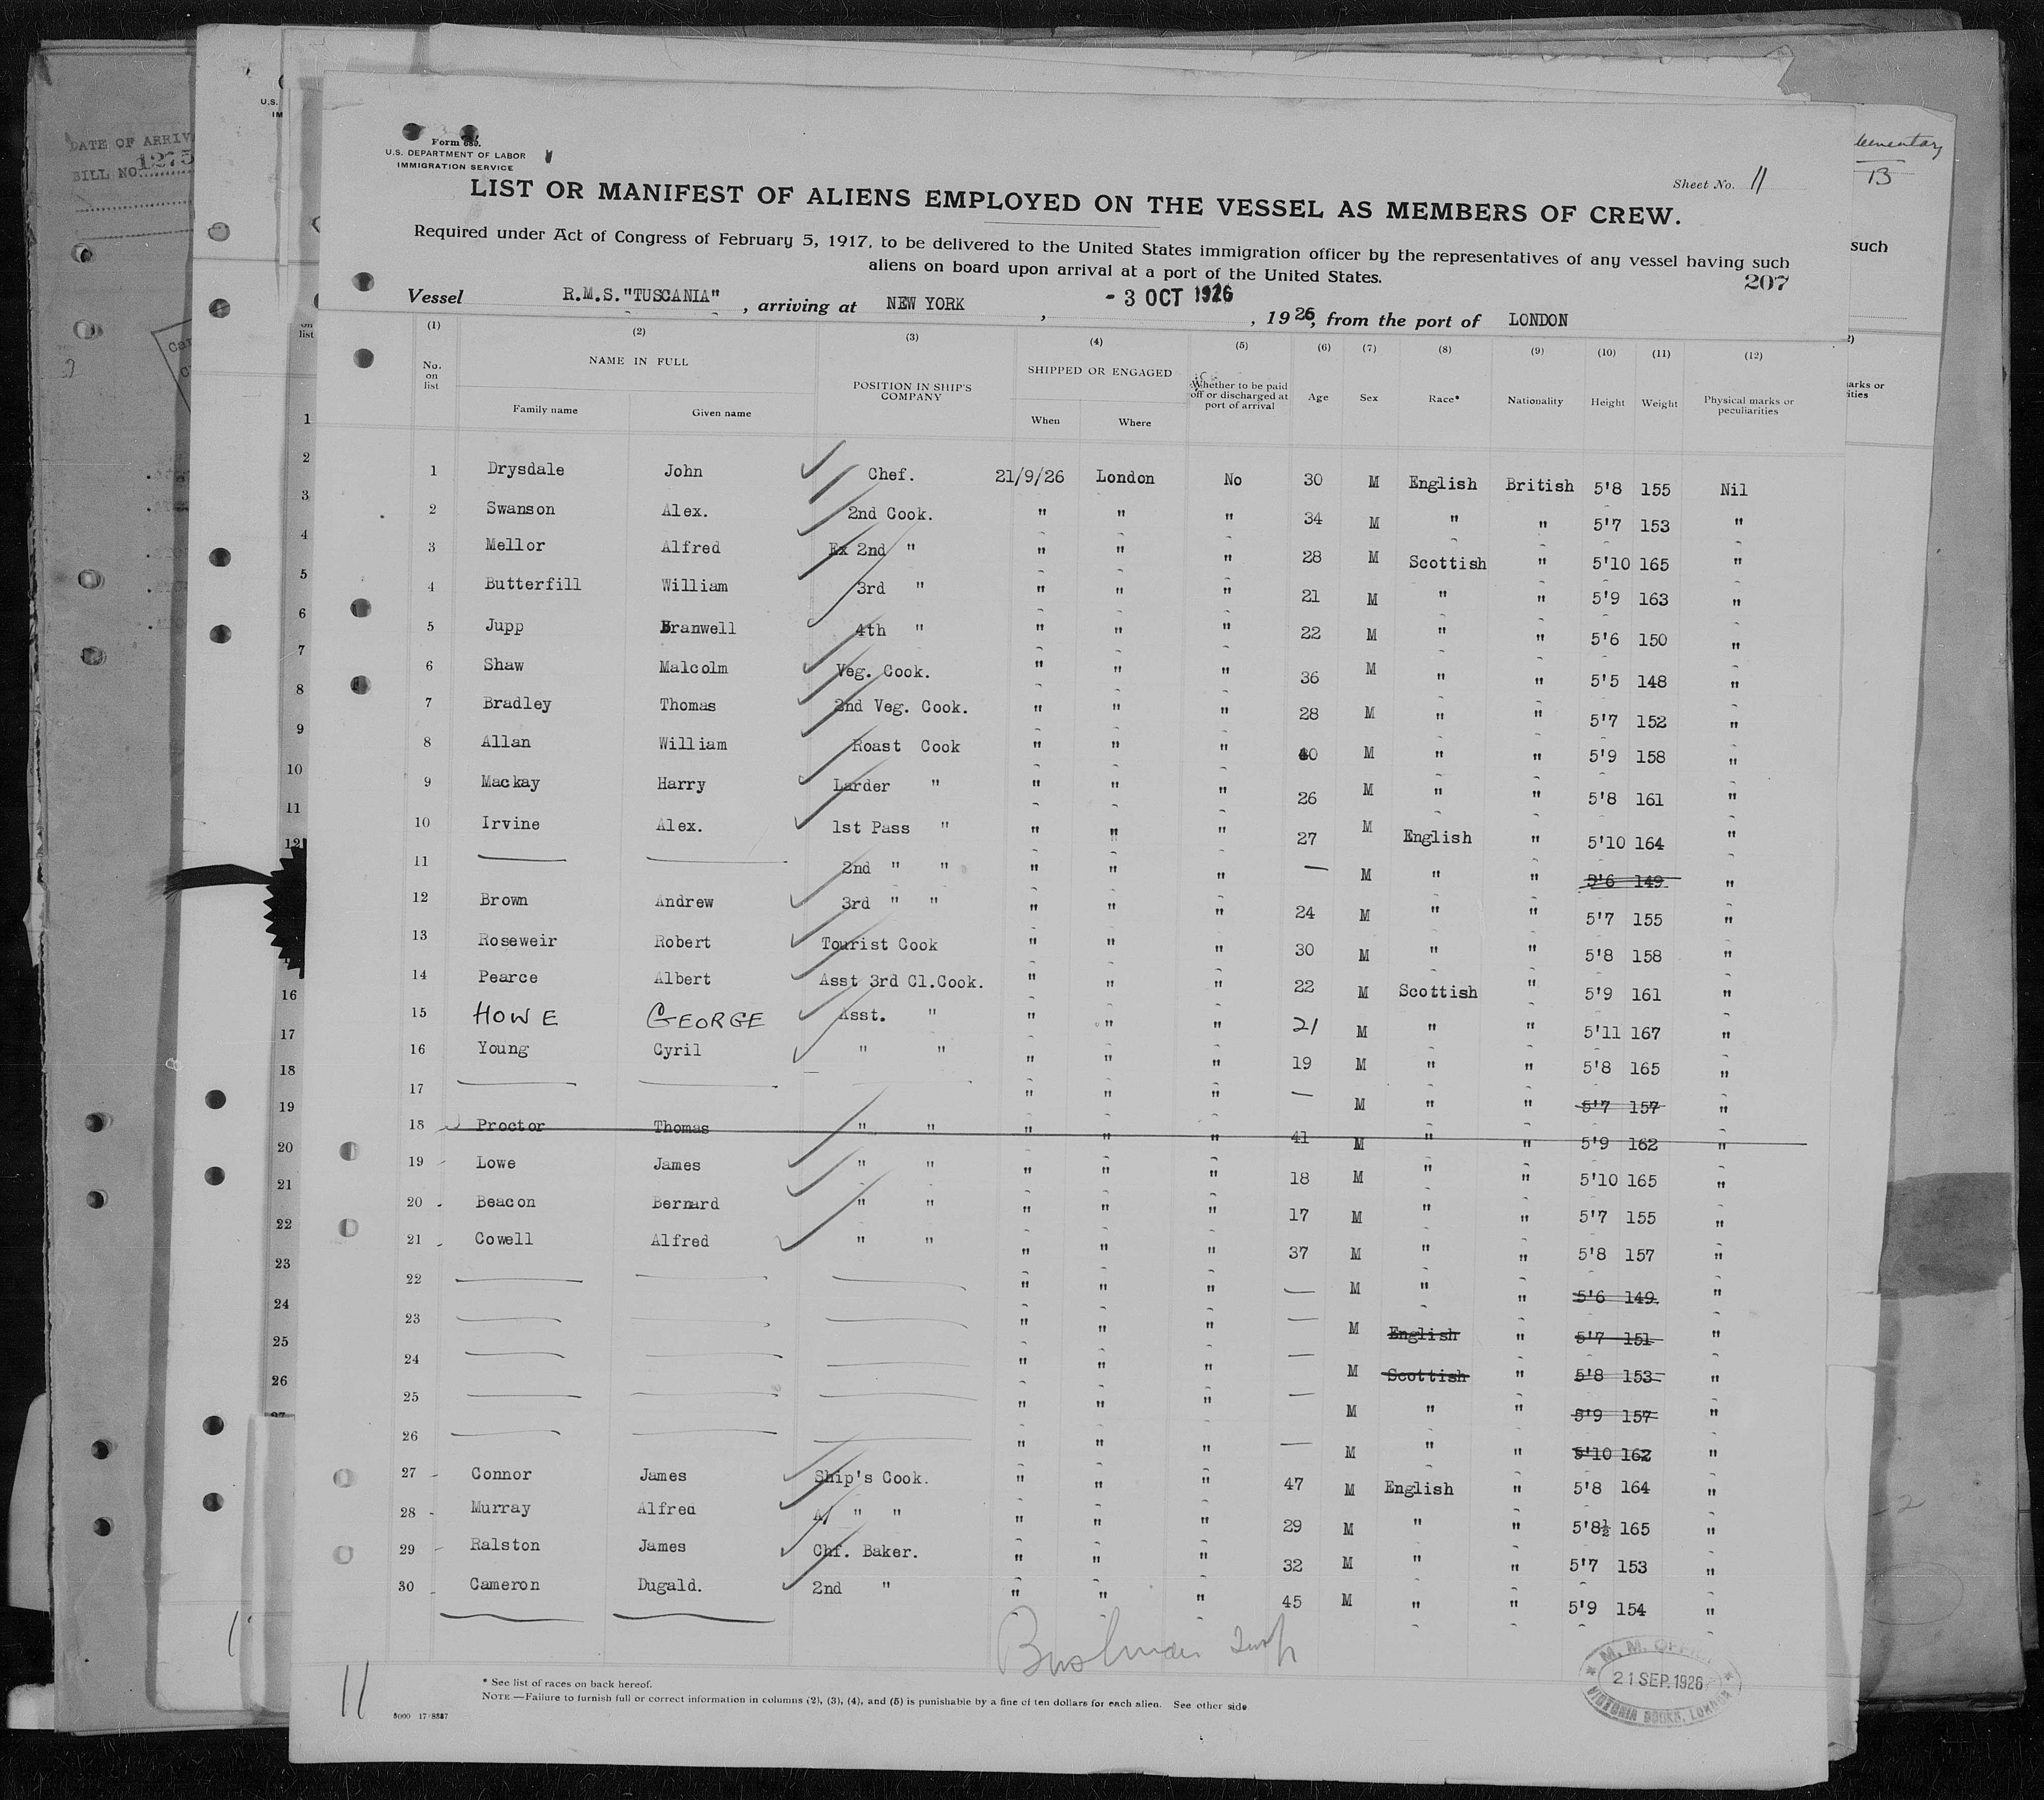 Form 680.
U.S. DEPARTMENT OF LABOR
IMMIGRATION SERVICE
Sheet No. 11
LIST OR MANIFEST OF ALIENS EMPLOYED ON THE VESSEL AS MEMBERS OF CREW.
Required under Act of Congress of February 5, 1917, to be delivered to the United States immigration officer by the representatives of any vessel having such
aliens on board upon arrival at a port of the United States.
207
Vessel R.M.S."TUSCANIA", arriving at NEW YORK, - 3 OCT 1926, 1926, from the port of LONDON
(1) (2) (3) (4) (5) (6) (7) (8) (9) (10) (11) (12)
No. on list NAME IN FULL POSITION IN SHIP'S COMPANY SHIPPED OR ENGAGED Whether to be paid off or discharged at port of arrival Age Sex Race* Nationality Height Weight Physical marks or peculiarities
Family name Given name When Where
1 Drysdale John Chef. 21/9/26 London No 30 M English British 5'8 155 Nil
2 Swanson Alex. 2nd Cook. " " " 34 M " " 5'7 153 "
3 Mellor Alfred Ex 2nd " " " " 28 M Scottish " 5'10 165 "
4 Butterfill William 3rd " " " " 21 M " " 5'9 163 "
5 Jupp Branwell 4th " " " " 22 M " " 5'6 150 "
6 Shaw Malcolm Veg. Cook. " " " 36 M " " 5'5 148 "
7 Bradley Thomas 2nd Veg. Cook. " " " 28 M " " 5'7 152 "
8 Allan William Roast Cook " " " 40 M " " 5'9 158 "
9 Mackay Harry Larder " " " " 26 M " " 5'8 161 "
10 Irvine Alex. 1st Pass " " " " 27 M English " 5'10 164 "
11 — — 2nd " " " " " — M " " 5'6 149 "
12 Brown Andrew 3rd " " " " " 24 M " " 5'7 155 "
13 Roseweir Robert Tourist Cook " " " 30 M " " 5'8 158 "
14 Pearce Albert Asst 3rd Cl.Cook. " " " 22 M Scottish " 5'9 161 "
15 HOWE GEORGE Asst. " " " " 21 M " " 5'11 167 "
16 Young Cyril " " " " " 19 M " " 5'8 165 "
17 — — — " " " — M " " 5'7 157 "
18 Proctor Thomas " " " " " 41 M " " 5'9 162 "
19 Lowe James " " " " " 18 M " " 5'10 165 "
20 Beacon Bernard " " " " " 17 M " " 5'7 155 "
21 Cowell Alfred " " " " " 37 M " " 5'8 157 "
22 — — — " " " — M " " 5'6 149 "
23 — — — " " " — M English " 5'7 151 "
24 — — — " " " — M Scottish " 5'8 153 "
25 — — — " " " — M " " 5'9 157 "
26 — — — " " " — M " " 5'10 162 "
27 Connor James Ship's Cook. " " " 47 M English " 5'8 164 "
28 Murray Alfred A/ " " " " " 29 M " " 5'8½ 165 "
29 Ralston James Chf. Baker. " " " 32 M " " 5'7 153 "
30 Cameron Dugald. 2nd " " " " 45 M " " 5'9 154 "
M. M. OFFICE
21 SEP. 1926
VICTORIA DOCKS, LONDON
* See list of races on back hereof.
NOTE—Failure to furnish full or correct information in columns (2), (3), (4), and (5) is punishable by a fine of ten dollars for each alien. See other side
11
DATE OF ARRIV
BILL NO. 1275
U.S.
IM
on
list
1
2
3
4
5
6
7
8
9
10
11
12
16
17
18
19
20
21
22
23
24
25
26
27
13
such
arks or
ities